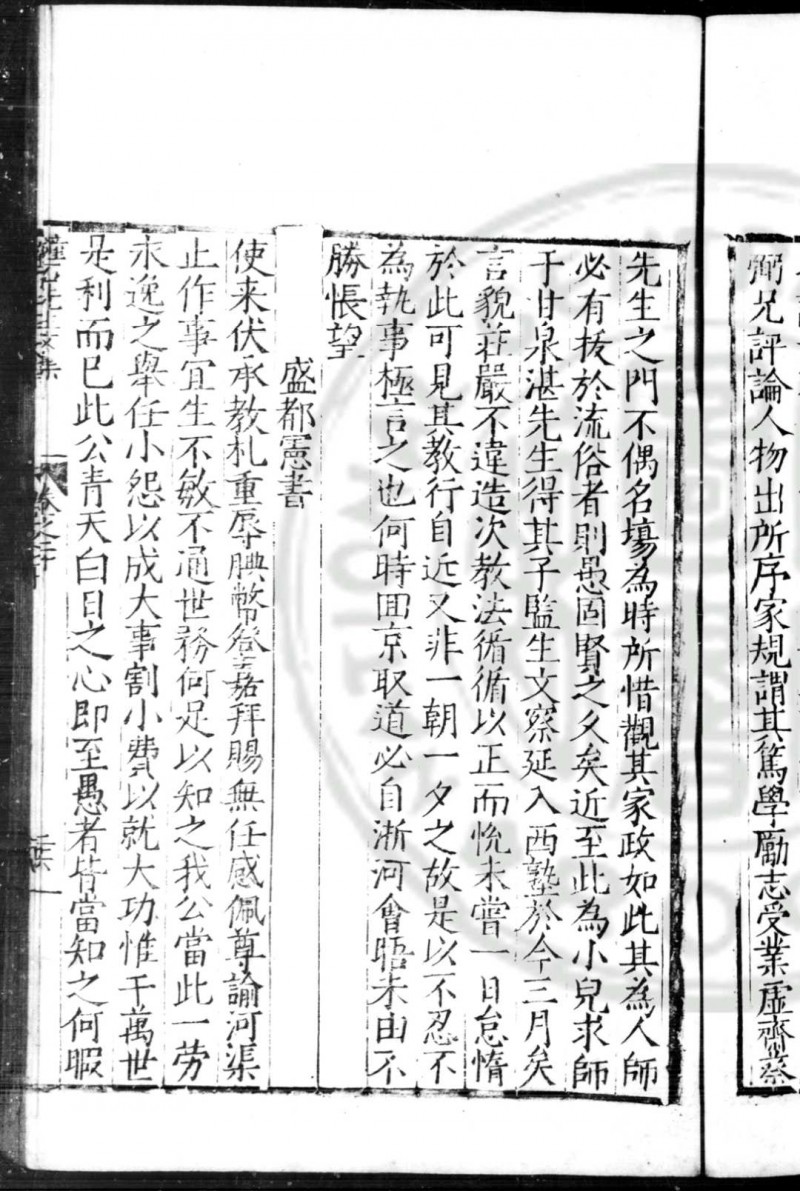 弼兄評論人物出所序家規謂其篤學勵志受業虛齋蔡
先生之門不偶名塲為時所惜觀其家政如此其為人師
必有拔於流俗者則愚固賢之久矣近至此為小兒求師
于甘泉湛先生得其子監生文察延入西塾於今三月矣
言貌莊嚴不違造次教法循循以正而恱未嘗一日怠惰
於此可見其教行自近又非一朝一夕之故是以不忍不
為執事極言之也何時囬京取道必自淅河會晤未由不
勝悵望
盛都憲書
使来伏承教札重辱腆幣登嘉拜賜無任感佩尊諭河渠
止作事宜生不敏不通世務何足以知之我公當此一劳
永逸之舉任小怨以成大事割小費以就大功惟千萬世
是利而已此公青天白日之心即至愚者皆當知之何暇
卷之二十